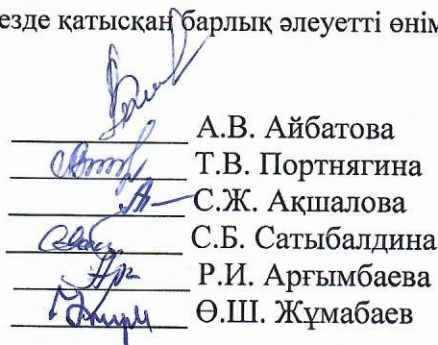 езде қатысқан барлық әлеуетті өнім
А.В. Айбатова
Т.В. Портнягина
С.Ж. Ақшалова
С.Б. Сатыбалдина
Р.И. Арғымбаева
Ө.Ш. Жұмабаев